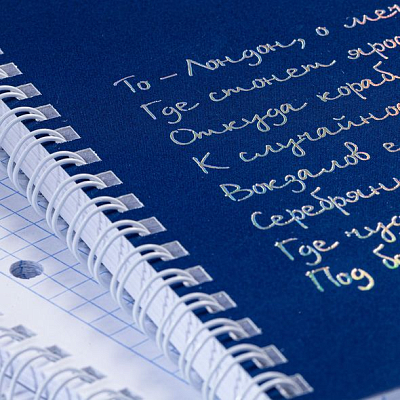 То – Лондон, о меч
Где стонет ярос
Откуда кораб
К случайнос
Вокзалов е
Серебряни
Где чус
Под б